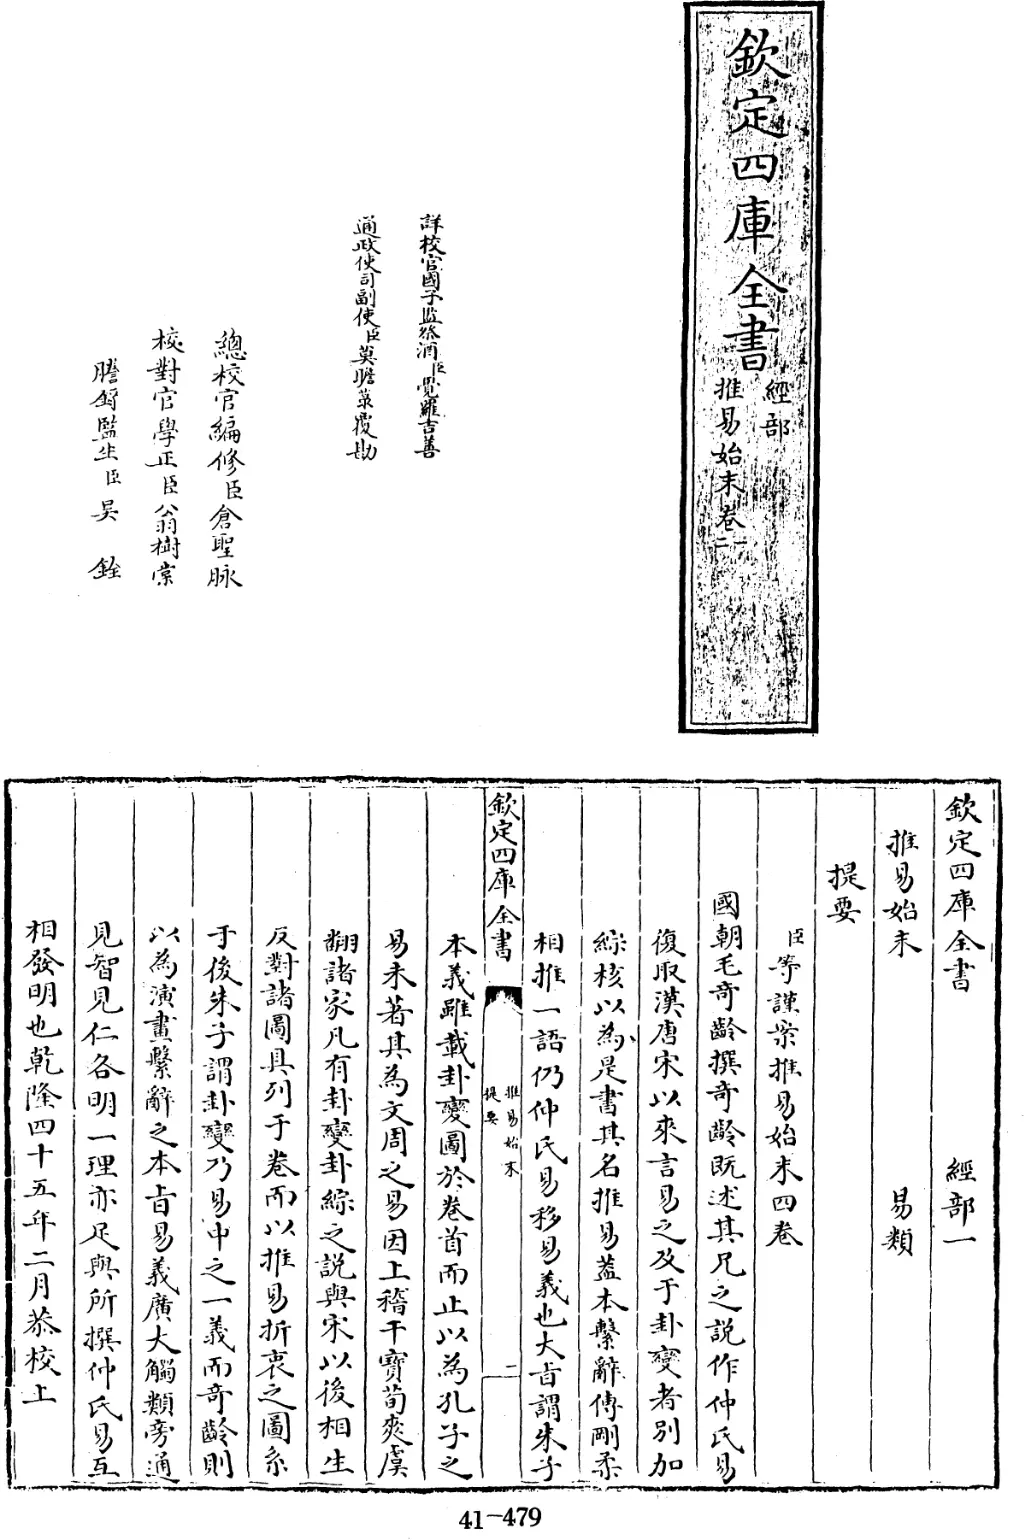 欽定四庫全書
經部
推易始末卷一
二
詳校官國子監祭酒臣覺羅吉善
通政使司副使臣莫瞻菉覆勘
總校官編修臣倉聖脉
校對官學正臣翁樹棠
謄錄監生臣吳銓
欽定四庫全書 經部一
推易始末 易類
提要
臣等謹案推易始末四卷
國朝毛奇齡撰奇齡既述其兄之說作仲氏易
復取漢唐宋以來言易之及于卦變者別加
綜核以為是書其名推易葢本繫辭傳剛柔
相推一語仍仲氏易移易義也大旨謂朱子
欽定四庫全書
推易始末
提要
二
本義雖載卦變圖於卷首而止以為孔子之
易未著其為文周之易因上稽干寶荀爽虞
翻諸家凡有卦變卦綜之說與宋以後相生
反對諸圖具列于卷而以推易折衷之圖系
于後朱子謂卦變乃易中之一義而奇齡則
以為演畫繫辭之本旨易義廣大觸類旁通
見智見仁各明一理亦足與所撰仲氏易互
相發明也乾隆四十五年二月恭校上
41-479